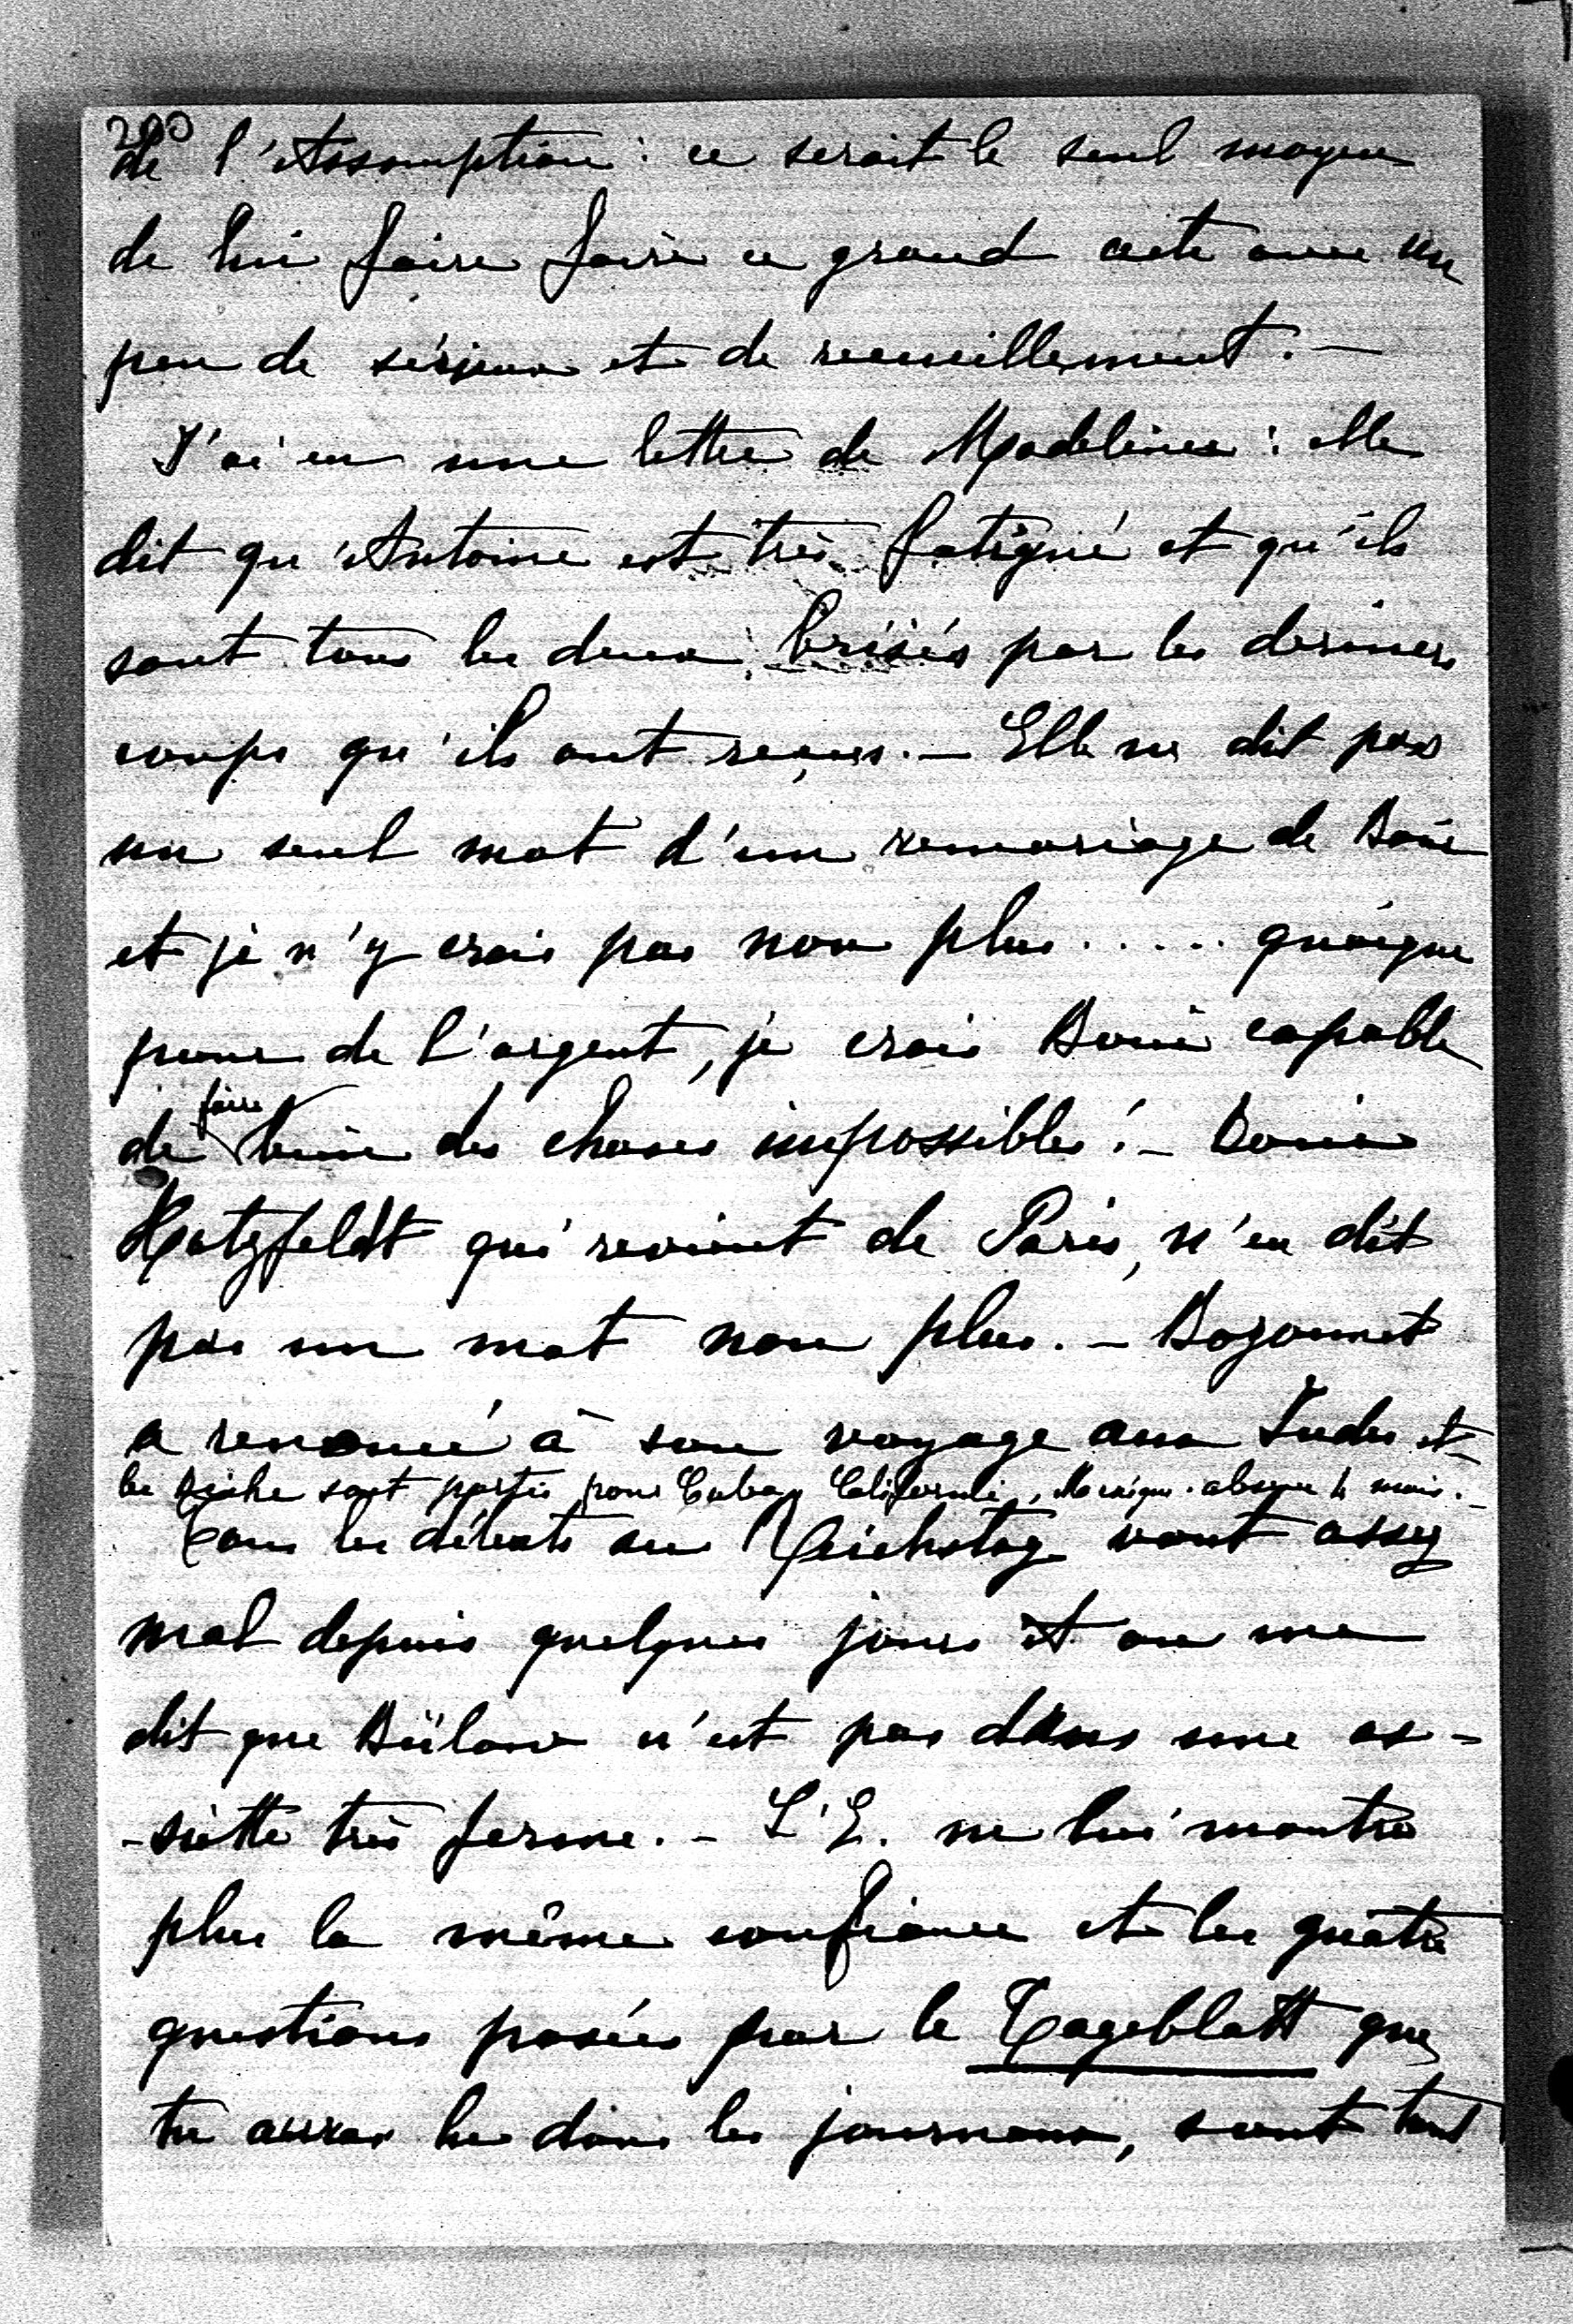 200
de l'Assomption : ce serait le seul moyen
de lui faire faire ce grand acte avec un
peu de sérieux et de recueillement. —
J'ai eu une lettre de Madeleine : elle
dit qu'Antoine est très fatigué et qu'ils
sont tous les deux brisés par les derniers
coups qu'ils ont reçus. — Elle ne dit pas
un seul mot d'un remariage de Boni
et je n'y crois pas non plus ..... quoique
pour de l'argent, je crois Boni capable
de faire des choses impossibles ! —
Hatzfeldt qui revient de Paris, n'en dit
pas un mot non plus. —
a renoncé à son voyage aux Indes et
les sont partis pour Cuba, Californie, Mexique. absence 4 mois. —
Tous les débats au Reichstag vont assez
mal depuis quelques jours et on me
dit que Bülow n'est pas dans une as-
-siette très ferme. — L'E. ne lui montre
plus la même confiance et les quatre
questions posées par le Tageblatt que
tu auras lu dans les journaux, sont tout